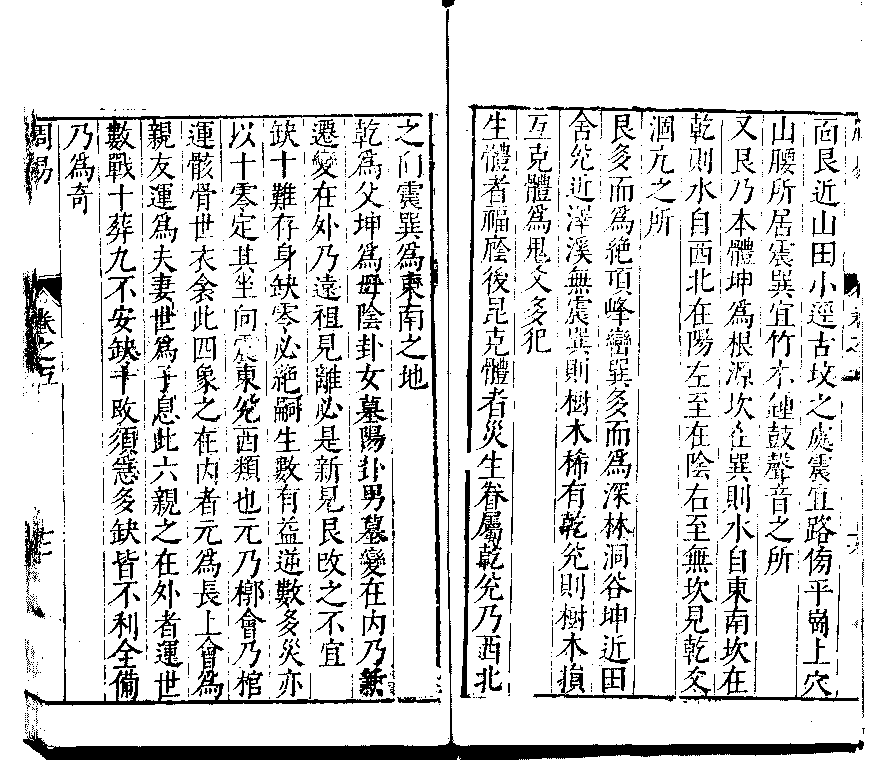 面艮近山田小逕古坟之處震宜路傍平崗上穴
山腰所居震巽宜竹木鍾鼓聲音之所
又艮乃本體坤爲根源坎在巽則水自東南坎在
乾則水自西北在陽左至在陰右至無坎見乾爻
涸亢之所
艮多而爲絶頂峰巒巽多而爲深林洞谷坤近田
舍兊近澤溪無震巽則樹木稀有乾兊則樹木損
互克體爲鬼爻多犯
生體者福廕後昆克體者災生眷屬乾兊乃西北
之向震巽爲東南之地
乾爲父坤爲母陰卦女墓陽卦男墓變在内乃新
遷變在外乃遠祖見離必是新見艮改之不宜
缺十難存身缺零必絶嗣生數有益逆數多災亦
以十零定其坐向震東兊西類也元乃槨會乃棺
運骸骨世衣衾此四象之在内者元爲長上會爲
親友運爲夫妻世爲子息此六親之在外者運世
數戰十葬九不安缺十改須急多缺皆不利全備
乃爲奇
周易
卷之五
七